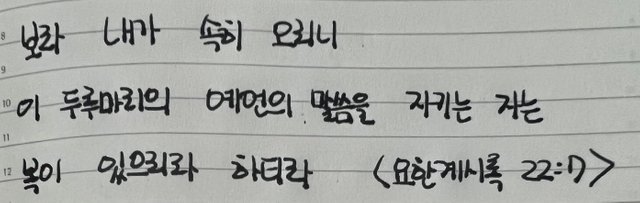 보라 내가 속히 오리니
이 두루마리의 예언의 말씀을 지키는 자는
복이 있으리라 하더라 <요한계시록 22:7>